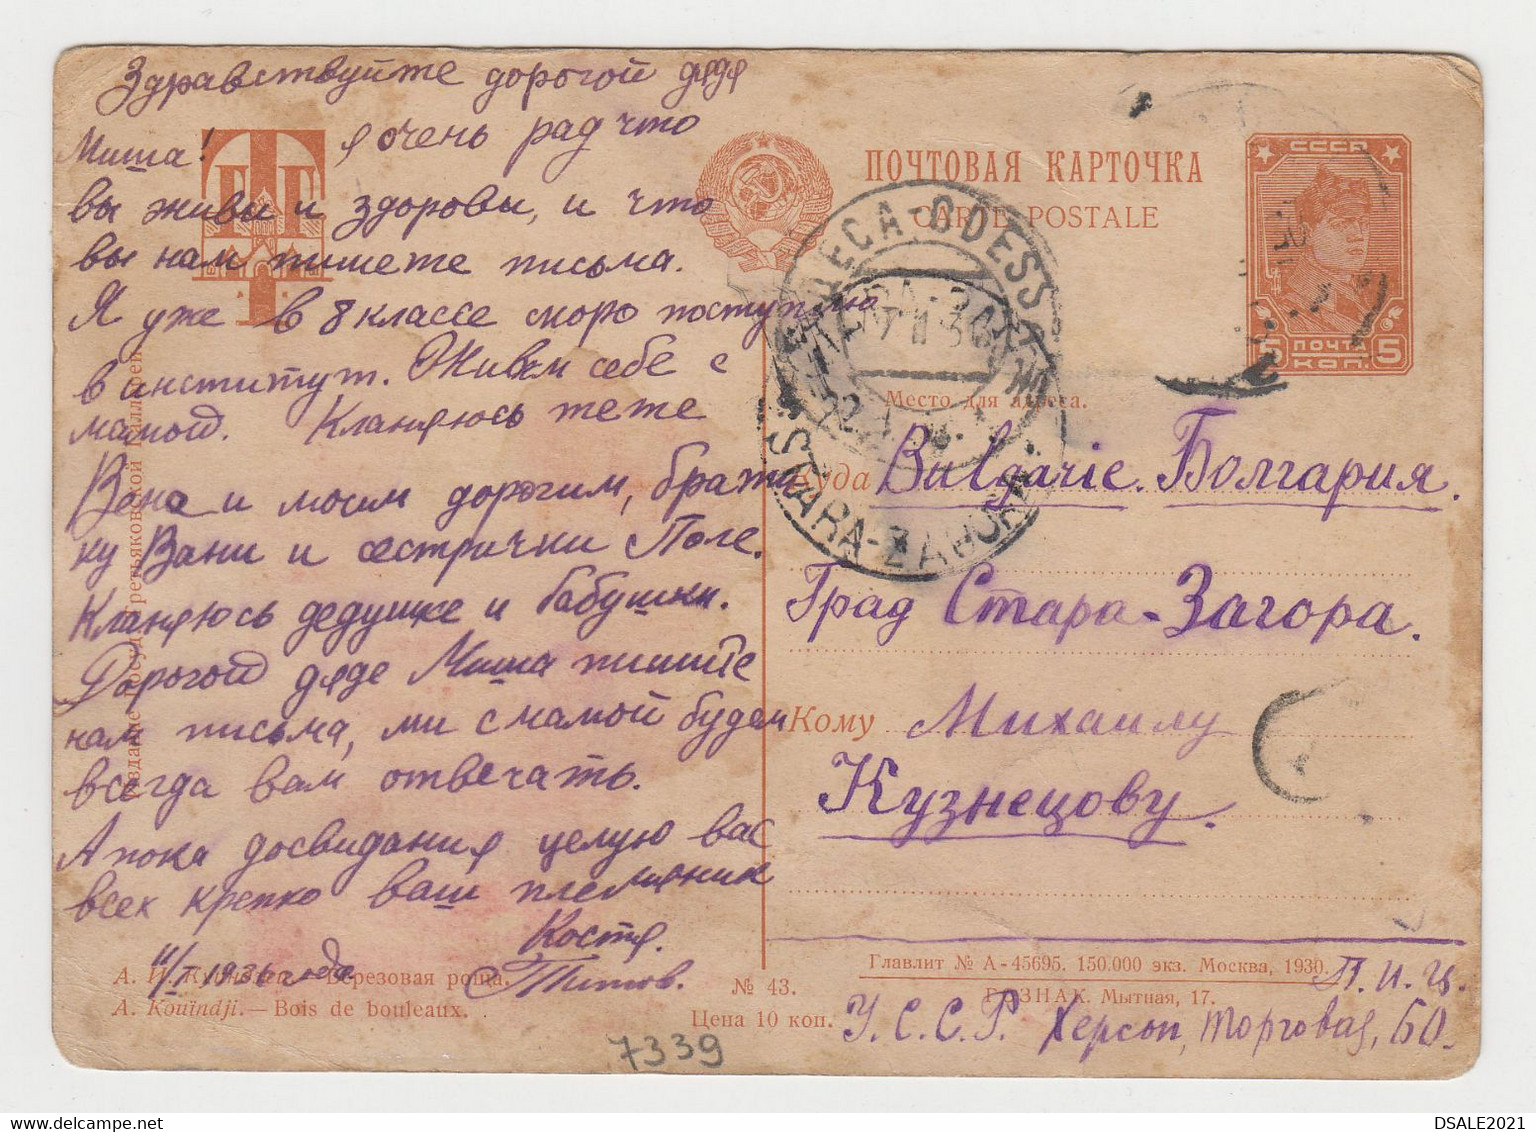 Здравствуйте дорогой дядя
Миша! я очень рад что
вы живы и здоровы, и что
вы нам пишете письма.
Я уже в 8 классе скоро поступлю
в институт. Живем себе с
мамой. Кланяюсь теже
Вена и моим дорогим, брати
ку Вани и сестрички Поле.
Кланяюсь дедушке и бабушки.
Дорогой дяде Миша пишите
нам письма, ми с мамой будем
всегда вам отвечать.
А пока досвидания целую вас
всех крепко ваш племяник
Костя.
11/I 1936 года Титов.
ГТГ
Издание Государ. Третьяковской Галлереи
А. И. Куинджи.— Березовая роща.
A. Kouïndji.— Bois de bouleaux.
№ 43.
Цена 10 коп.
7339
ПОЧТОВАЯ КАРТОЧКА
CARTE POSTALE
СССР
5 ПОЧТА 5
КОП.
ODESSA
STARA-ZAGORA
Место для адреса.
Куда Bulgarie. Болгария.
Град Стара-Загора.
Кому Михаилу
Кузнецову.
Главлит № А-45695. 150.000 экз. Москва, 1930.
ГОЗНАК. Мытная, 17.
У.С.С.Р. Херсон, Торговая, 60.
DSALE2021